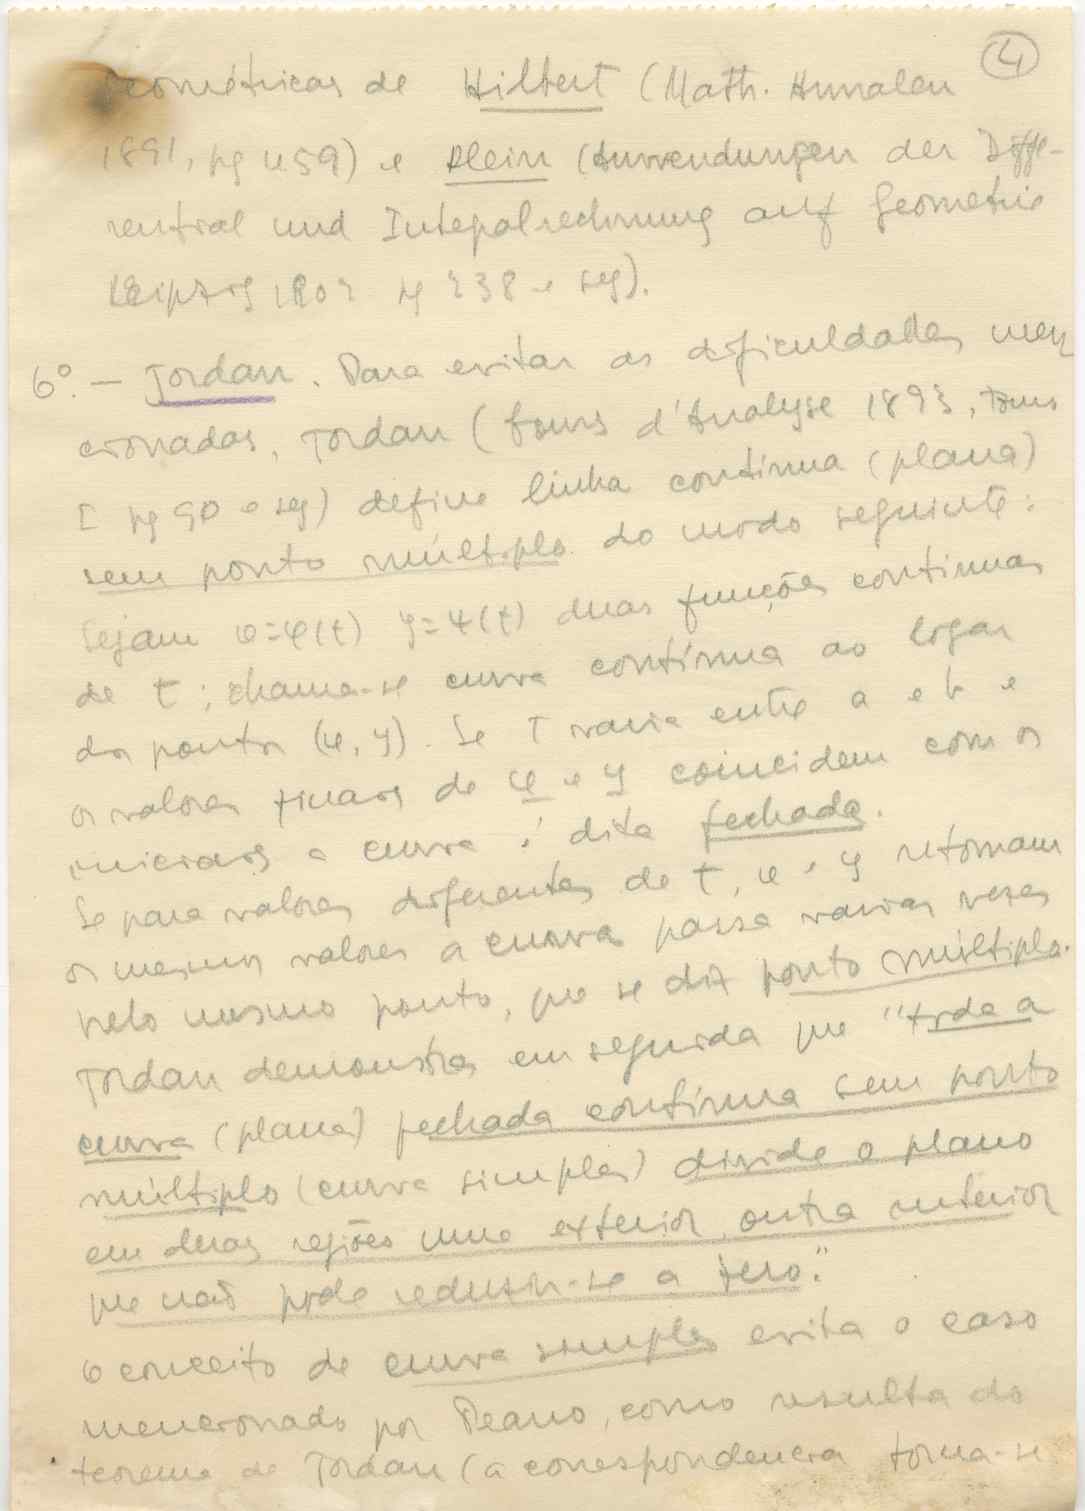 4
Geométricas de Hilbert (Math. Annalen
1891, pg 459) e Klein (Anwendungen der Diffe-
rential und Integralrechnung auf Geometrie
Leipzig 1902 pg 238 e seg).
6º. — Jordan. Para evitar as dificuldades men
cionadas, Jordan (Cours d'Analyse 1893, Tome
I pg 90 e seg) define linha contínua (plana)
sem ponto múltiplo do modo seguinte:
Sejam x=φ(t) y=ψ(t) duas funções continuas
de t; chama-se curva contínua ao logar
dos pontos (x, y). Se t varia entre a e b e
os valores finais de x e y coincidem com os
iniciais a curva é dita fechada.
Se para valores diferentes de t, x e y retomam
os mesmos valores a curva passa varias vezes
pelo mesmo ponto, que se diz ponto múltiplo.
Jordan demonstra em seguida que "toda a
curva (plana) fechada contínua sem ponto
múltiplo (curva simples) divide o plano
em duas regiões uma exterior, outra interior
que não pode reduzir-se a zero."
O conceito de curva simples evita o caso
mencionado por Peano, como resulta do
teorema de Jordan (a correspondencia torna-se